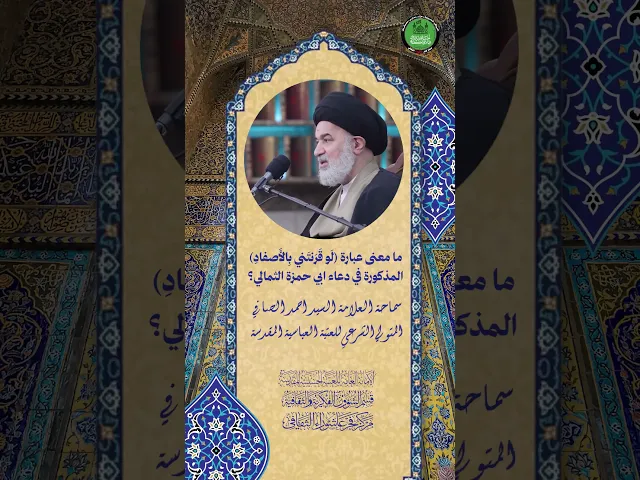 ما معنى عبارة (لَو قَرَنتَني بِالأَصفادِ)
المذكورة في دعاء ابي حمزة الثمالي؟
سماحة العلامة السيد احمد الصافي
المتولي الشرعي للعتبة العباسية المقدسة
الأمانة العامة للعتبة الحسينية المقدسة
قسم الشؤون الفكرية والثقافية